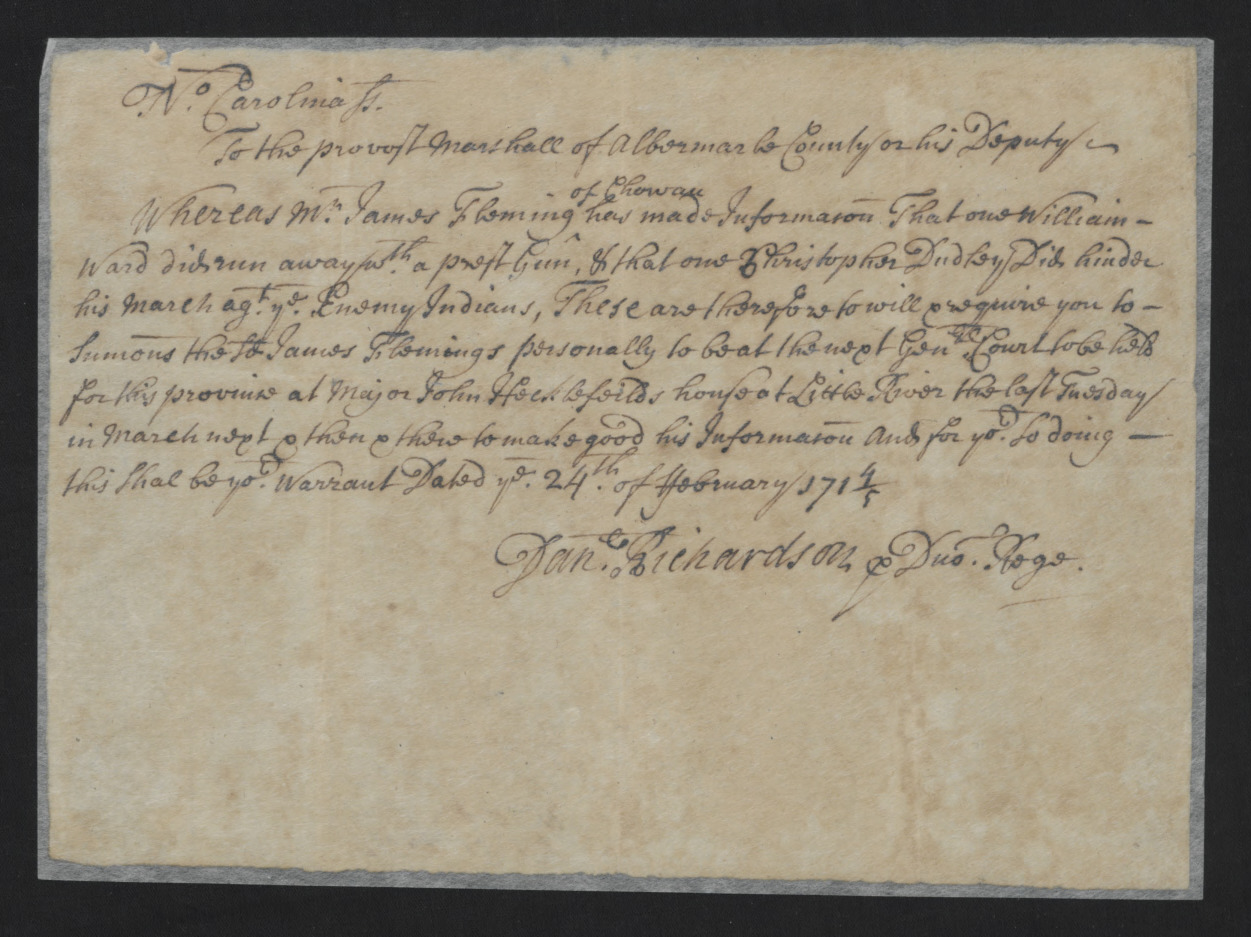 No. Carolina ss.
To the provost Marshall of Albermarle County or his Deputy
of Chowan
Whereas Mr. James Fleming has made Informacon That one William -
Ward did run away wth. a prest Gun, & that one Christopher Dudley Did hinder
his March agt. ye. Enemy Indians, These are therefore to will & require you to -
Sumons the sd James Flemings personally to be at the next Genll. Court to be held
for this province at Major John Hecklefeilds house at Little River the last Tuesday
in March next & then & there to make good his Informacon And for yor. so doing —
this shal be yor. Warrant Dated ye. 24th. of ffebruary 171 4/5
Danl. Richardson p Dno. Rege.